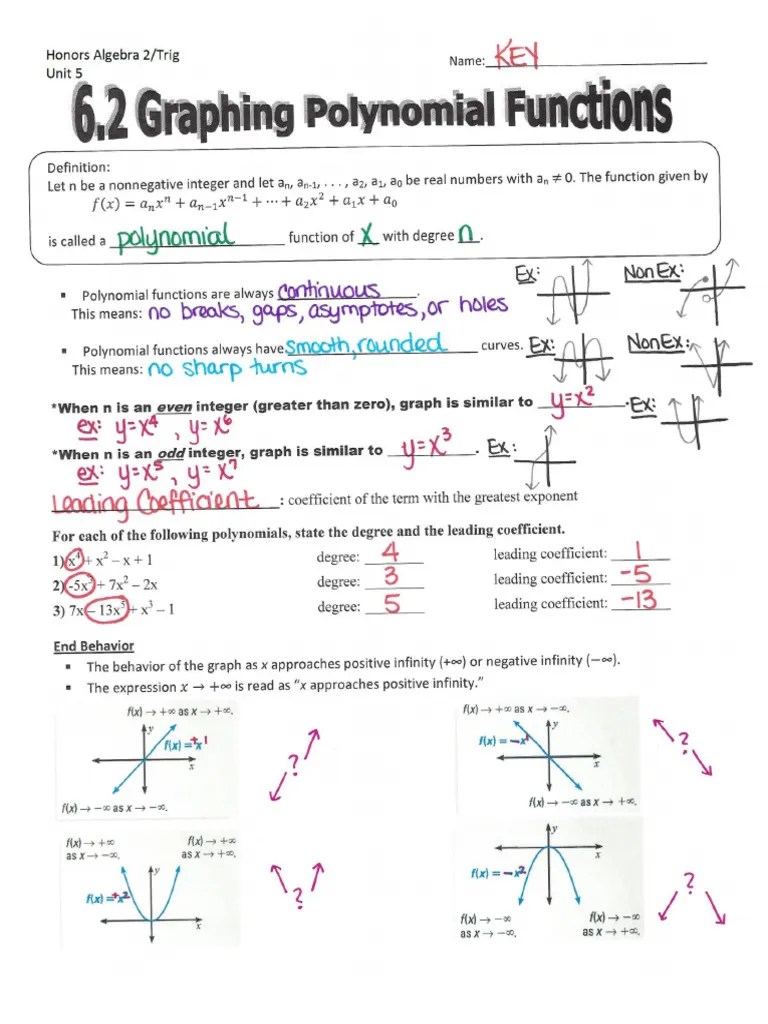 Honors Algebra 2/Trig
Name: KEY
Unit 5
6.2 Graphing Polynomial Functions
Definition:
Let n be a nonnegative integer and let aₙ, aₙ₋₁, . . . , a₂, a₁, a₀ be real numbers with aₙ ≠ 0. The function given by
f(x) = aₙxⁿ + aₙ₋₁xⁿ⁻¹ + ⋯ + a₂x² + a₁x + a₀
is called a polynomial function of x with degree n.
Ex: Non Ex:
▪ Polynomial functions are always continuous.
This means: no breaks, gaps, asymptotes, or holes
▪ Polynomial functions always have smooth, rounded curves. Ex: Non Ex:
This means: no sharp turns
*When n is an even integer (greater than zero), graph is similar to y=x². Ex:
ex: y=x⁴, y=x⁶
*When n is an odd integer, graph is similar to y=x³. Ex:
ex: y=x⁵, y=x⁷
Leading Coefficient: coefficient of the term with the greatest exponent
For each of the following polynomials, state the degree and the leading coefficient.
1) x⁴ + x² – x + 1 degree: 4 leading coefficient: 1
2) -5x³ + 7x² – 2x degree: 3 leading coefficient: -5
3) 7x – 13x⁵ + x³ – 1 degree: 5 leading coefficient: -13
End Behavior
▪ The behavior of the graph as x approaches positive infinity (+∞) or negative infinity (−∞).
▪ The expression x → +∞ is read as “x approaches positive infinity.”
f(x) → +∞ as x → +∞.
y
f(x) = +x¹
x
f(x) → −∞ as x → −∞.
?
f(x) → +∞ as x → −∞.
y
f(x) = −x¹
x
f(x) → −∞ as x → +∞.
?
f(x) → +∞
as x → −∞.
f(x) → +∞
as x → +∞.
y
f(x) = +x²
x
?
y
x
f(x) = −x²
f(x) → −∞
as x → −∞.
f(x) → −∞
as x → +∞.
?